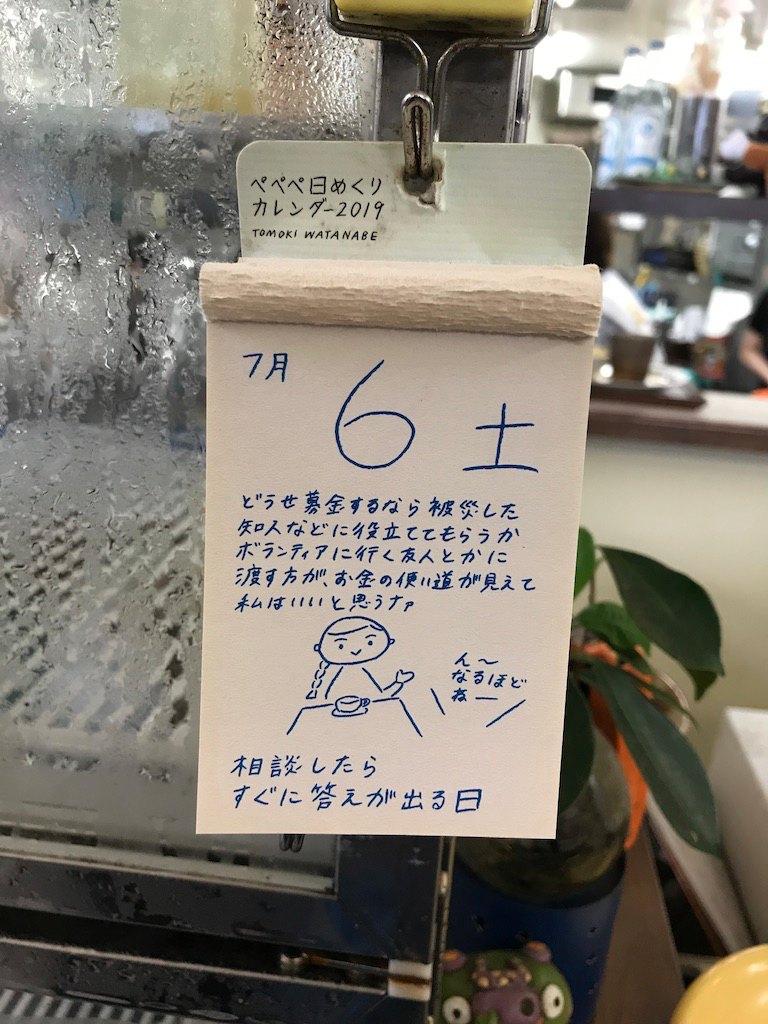 ペペペ日めくり
カレンダー2019
TOMOKI WATANABE
7月
6
土
どうせ募金するなら被災した
知人などに役立ててもらうか
ボランティアに行く友人とかに
渡す方が、お金の使い道が見えて
私はいいと思うナァ
ん〜
なるほど
ねー
相談したら
すぐに答えが出る日